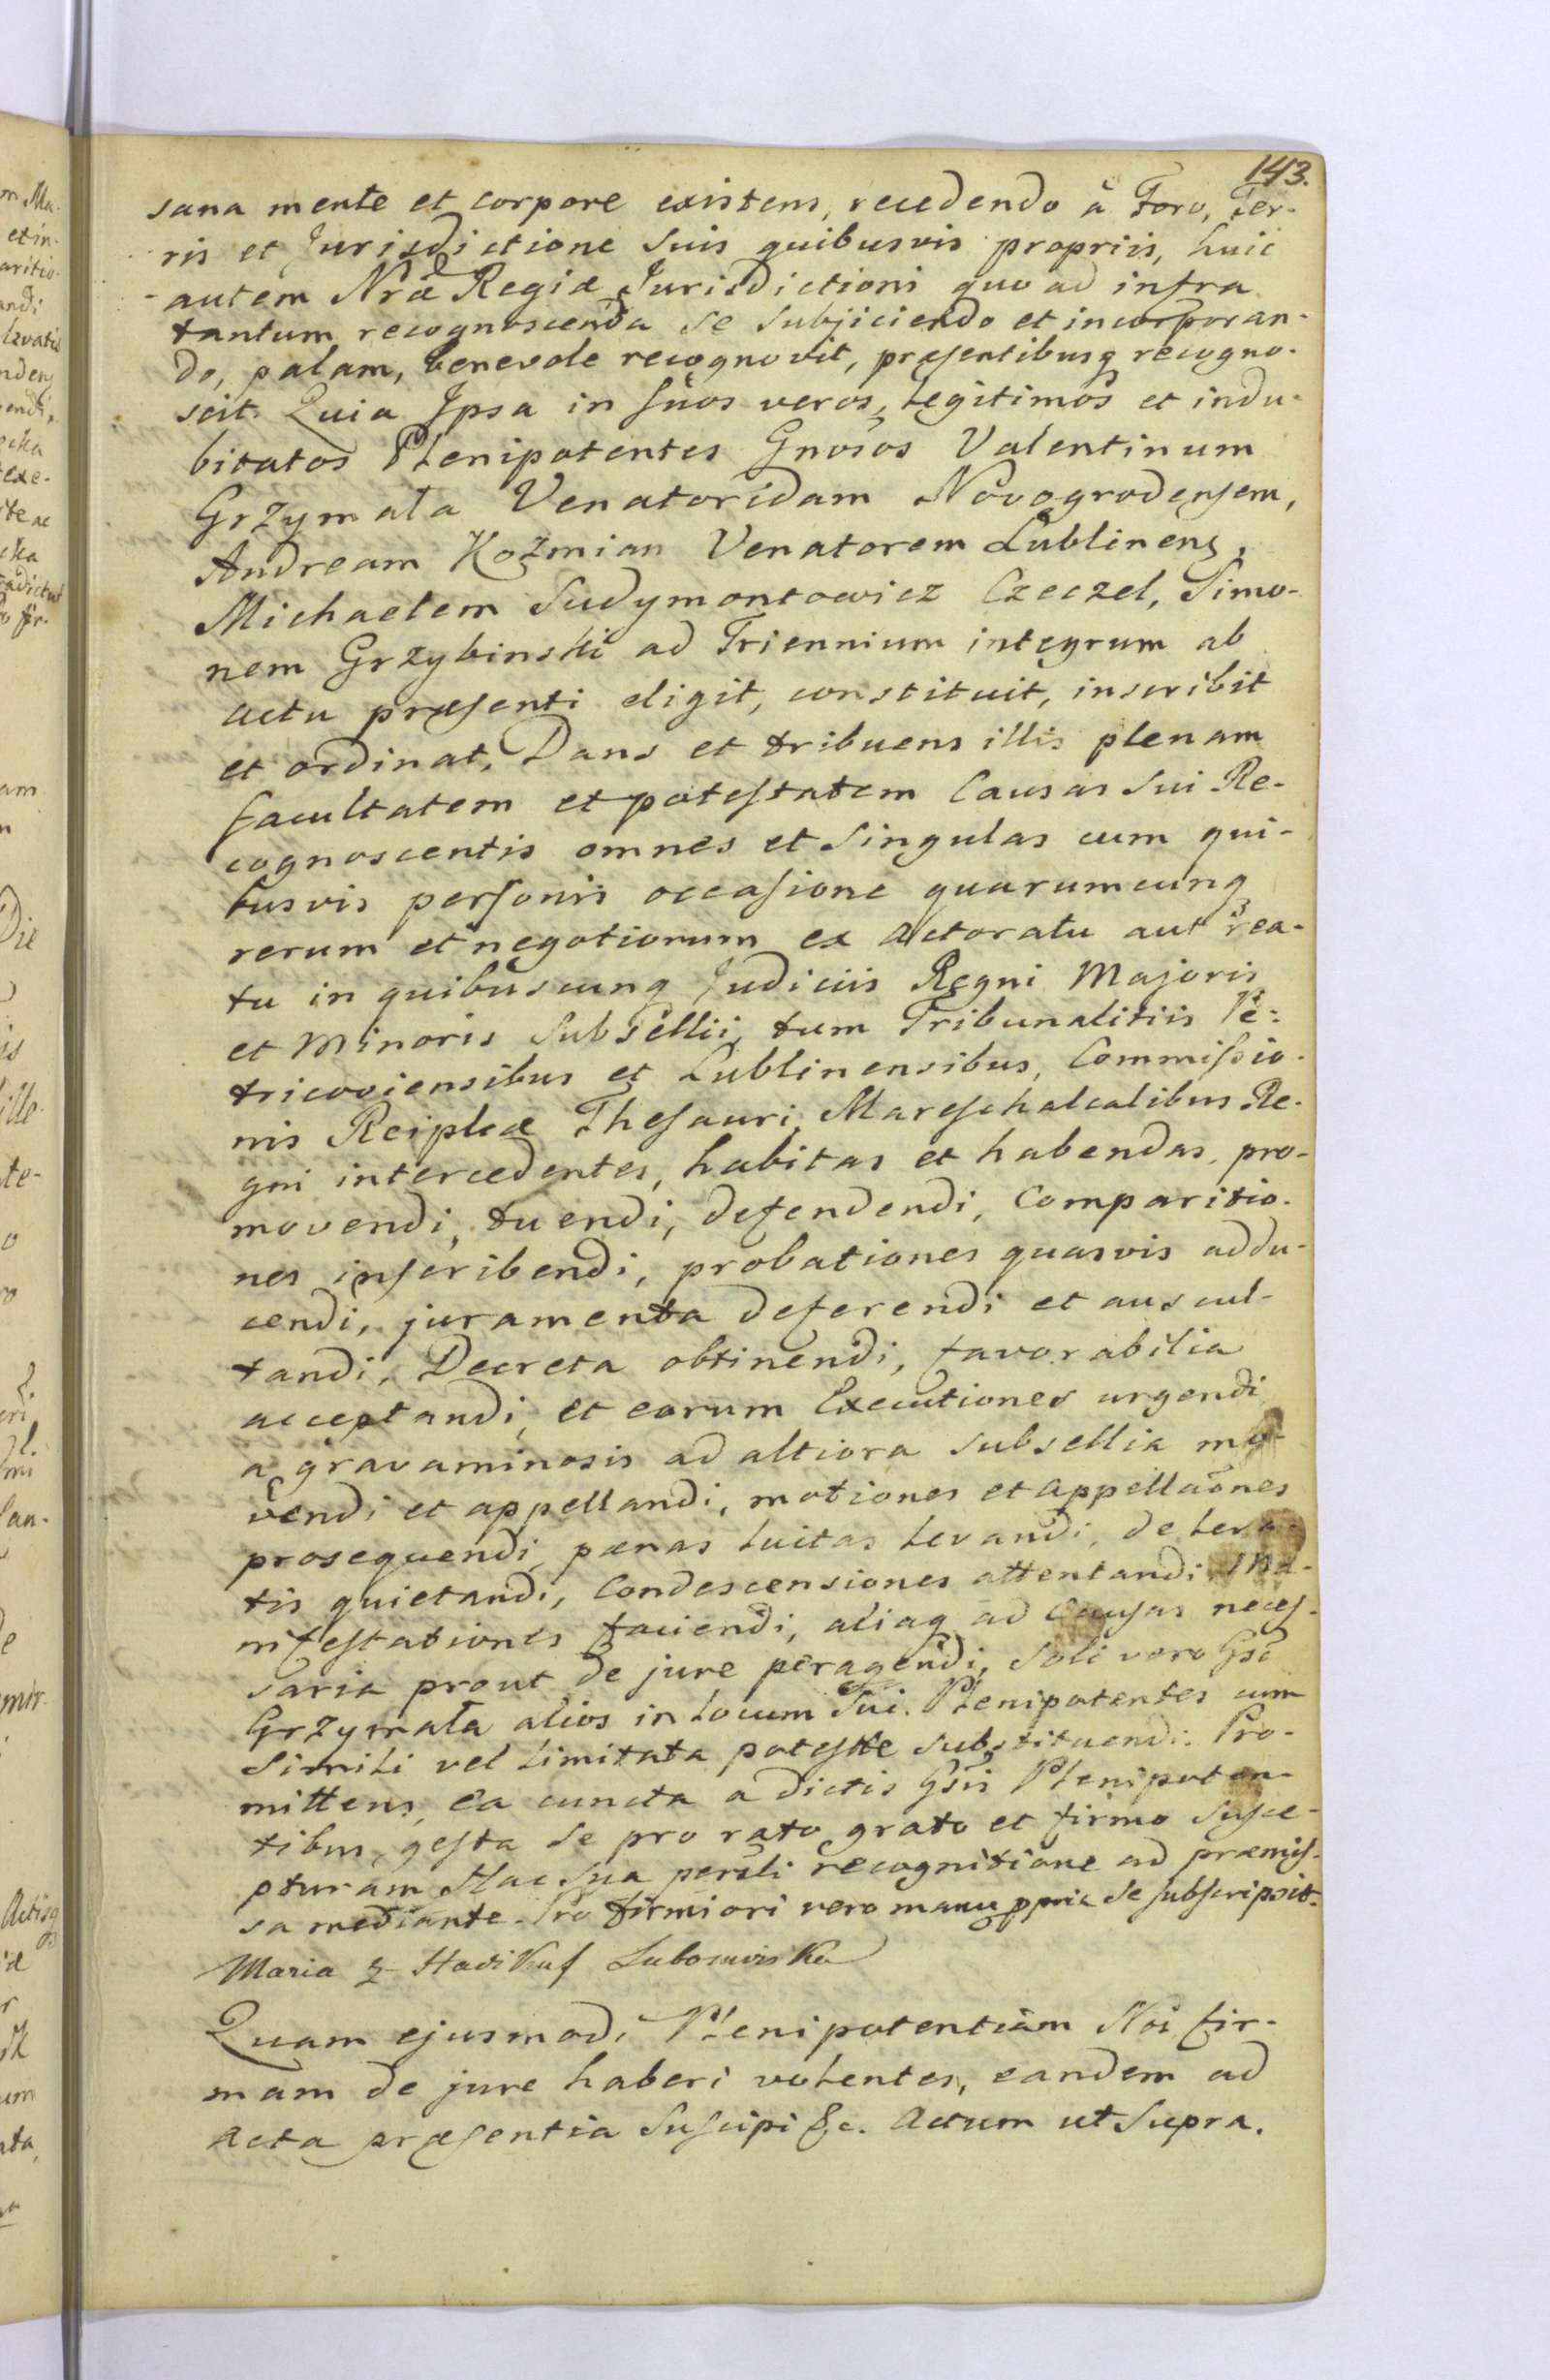 143.
sana mente et corpore existens, recedendo à Foro, Ter-
ris et Jurisdictione suis quibusvis propriis, huic
autem Nrae Regiae Jurisdictioni quo ad infra
tantum recognoscenda se subjiciendo et incorporan-
do, palam, benevole recognovit, praesentibusq recogno-
scit. Quia Ipsa in suos veros, legitimos et indu-
bitatos Plenipotentes Gnosos Valentinum
Grzymała Venatoridam Novogrodensem,
Andream Kozmian Venatorem Lublinens,
Michaelem Sudymontowicz Czeczel, Simo-
nem Grzybinski ad Triennium integrum ab
actu praesenti eligit, constituit, inscribit
et ordinat, Dans et tribuens illis plenam
facultatem et potestatem Causas sui Re-
cognoscentis omnes et singulas cum qui-
busvis personis occasione quarumcunq
rerum et negotiorum ex actoratu aut rea-
tu in quibuscunq Judiciis Regni Majoris
et Minoris Subsellii, tum Tribunalitiis Pe-
tricoviensibus et Lublinensibus, Commissio-
nis Reiplcae Thesauri, Mareschalcalibus Re-
gni intercedentes, habitas et habendas, pro-
movendi, tuendi, defendendi, Comparitio-
nes inscribendi, probationes quasvis addu-
cendi, juramenta deferendi et auscul-
tandi, Decreta obtinendi, favorabilia
acceptandi, et eorum Executiones urgendi
à gravaminosis ad altiora subsellia mo-
vendi et appellandi, motiones et appellaones
prosequendi, paenas luitas levandi, de leva-
tis quietandi, Condescensiones attentandi, Ma-
nifestationes faciendi, aliaq ad Causas neces-
saria prout de jure peragendi, soli vero Gso
Grzymała alios in locum sui Plenipotentes cum
simili vel limitata potestte substituendi. Pro-
mittens, ea cuncta a dictis Gsis Plenipoten-
tibus, gesta se pro rato grato et firmo susce-
pturam Hac sua persli recognitione ad praemis-
sa mediante. Pro firmiori vero manu ppria se subscripsit.
Maria z Hadikuf Lubomirska
Quam ejusmodi Plenipotentiam Nos fir-
mam de jure haberi volentes, eandem ad
Acta praesentia suscipi &c. Actum ut supra.